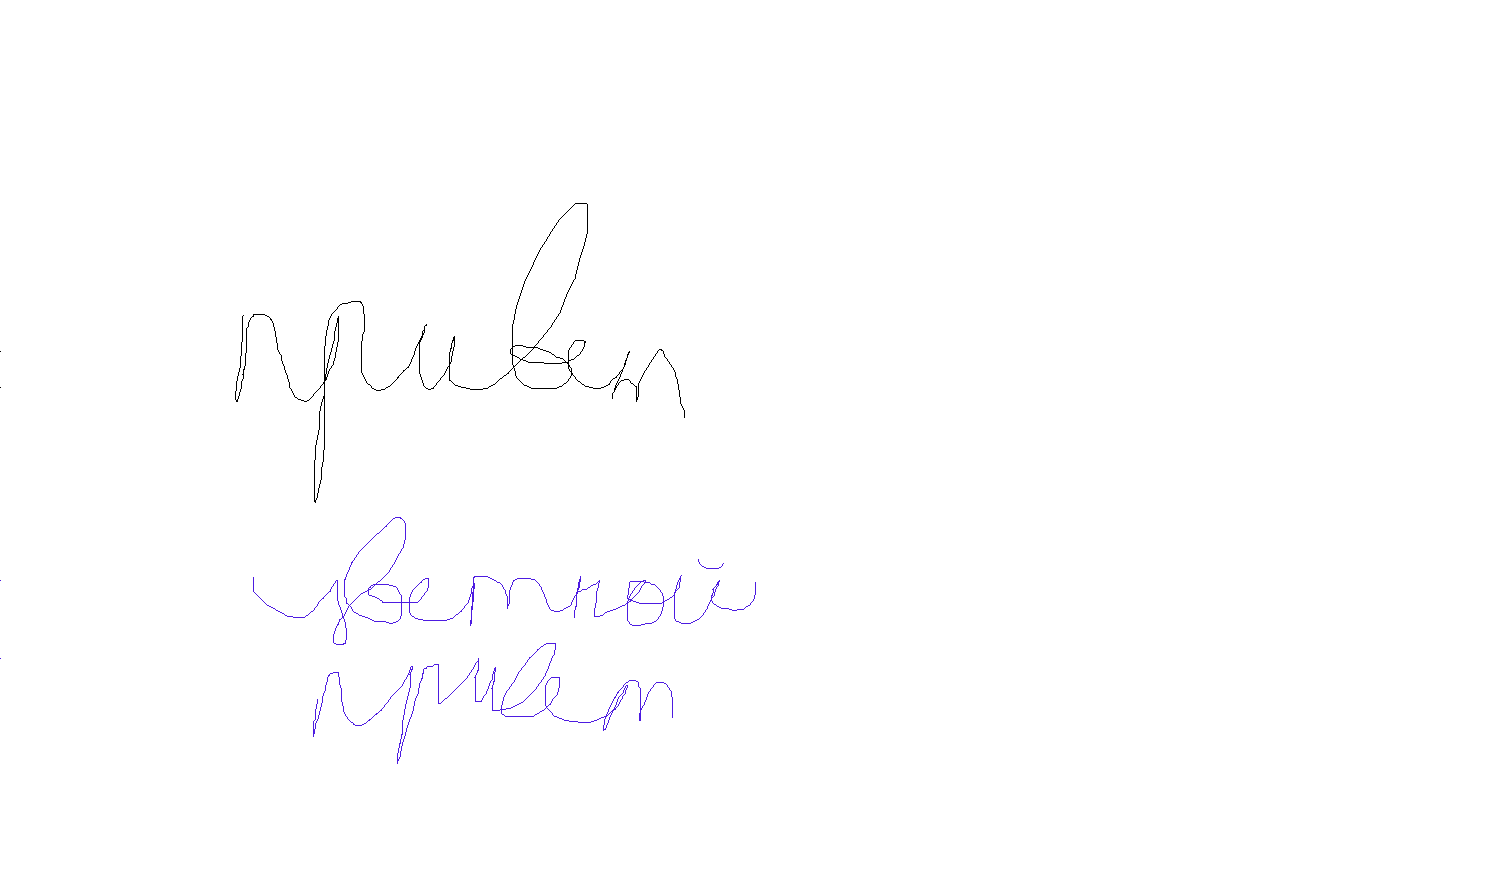 привет
цветной
привет